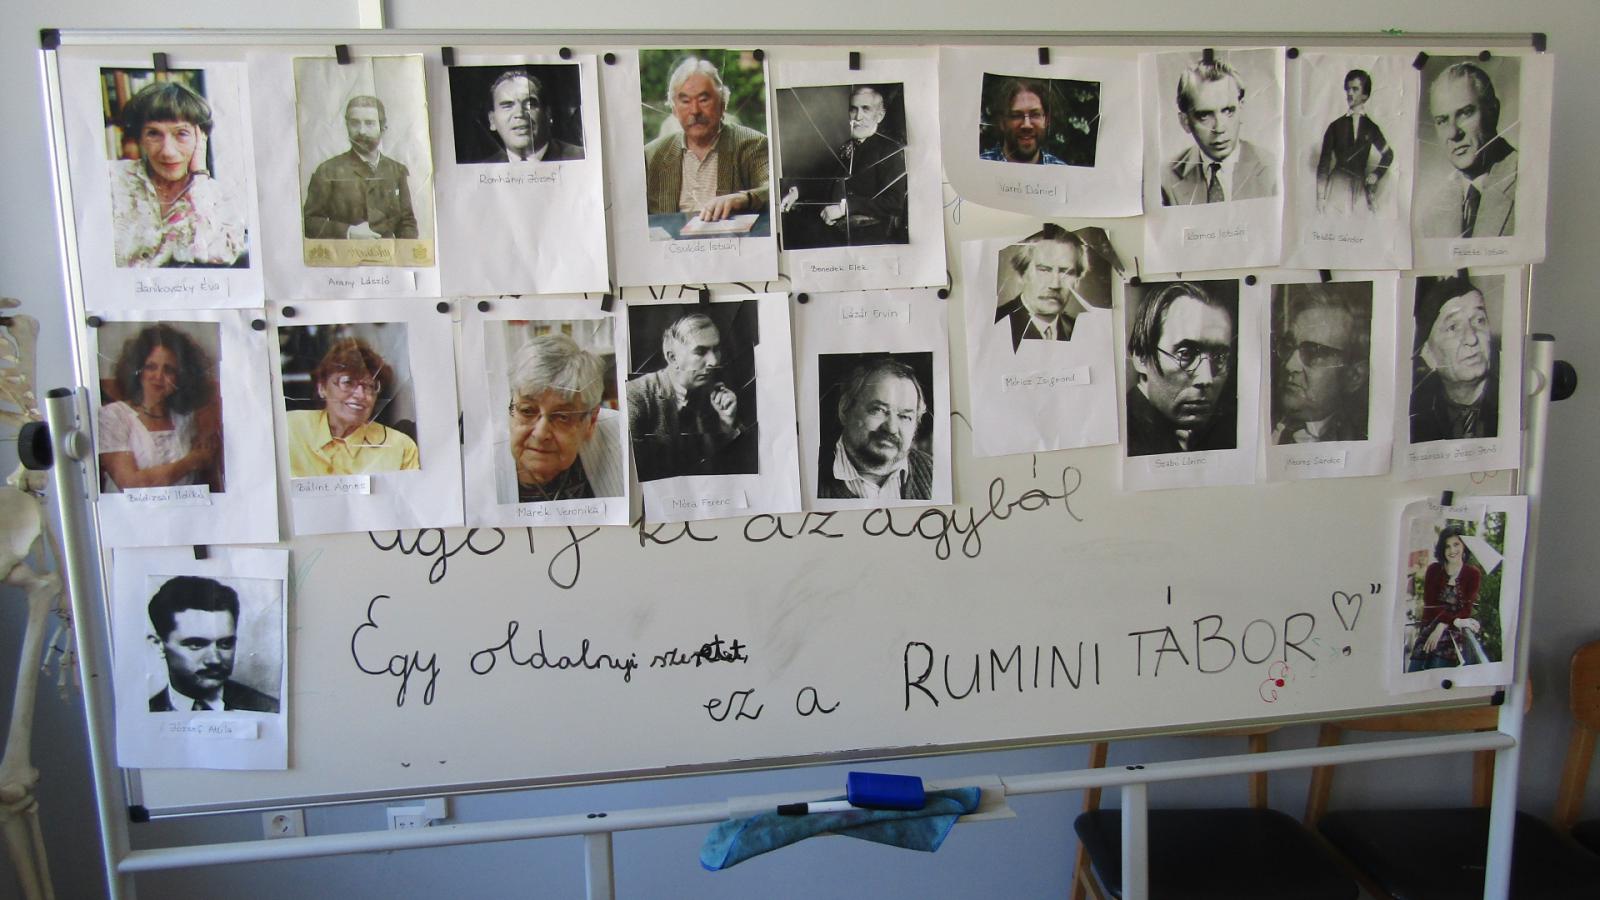 Romhányi József
Csukás István
Varró Dániel
Kormos István
Petőfi Sándor
Fekete István
Janikovszky Éva
Arany László
Benedek Elek
Lázár Ervin
Móricz Zsigmond
Boldizsár Ildikó
Bálint Ágnes
Marék Veronika
Móra Ferenc
Szabó Lőrinc
Weöres Sándor
Jenő
ki az ágyból
Egy oldalnyi szeretet,
ez a RUMINI TÁBOR ♡"
József Attila